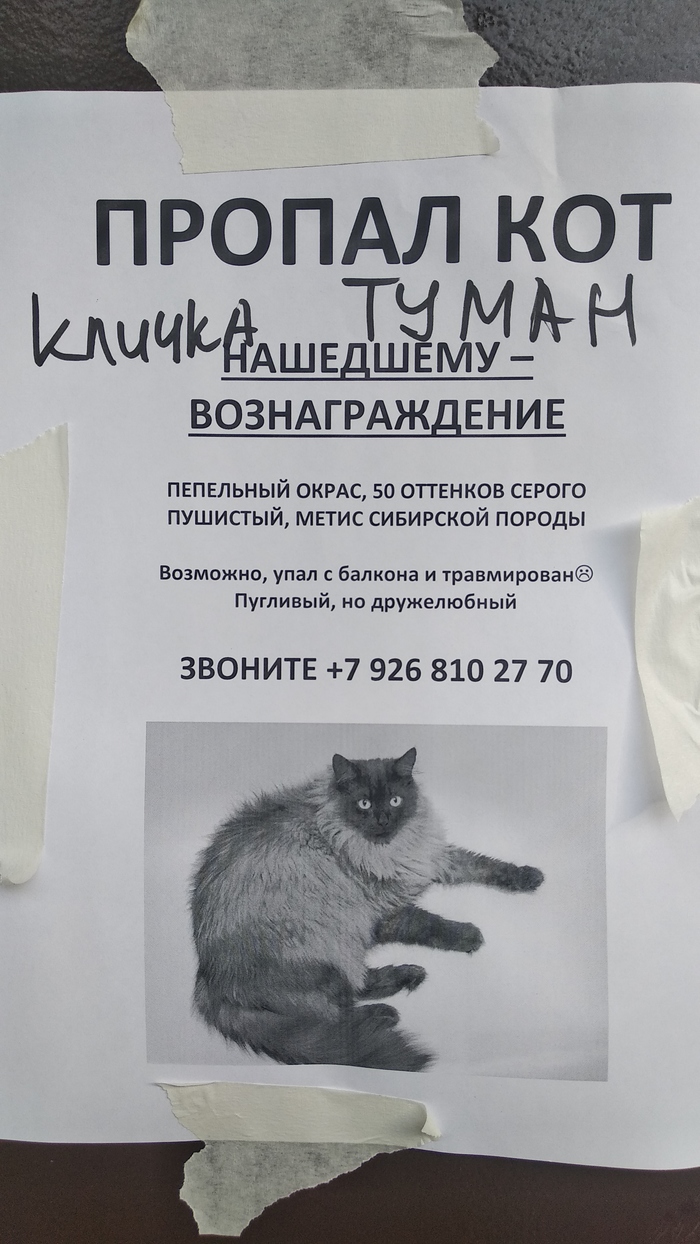 ПРОПАЛ КОТ
кличкА ТУМАН
НАШЕДШЕМУ –
ВОЗНАГРАЖДЕНИЕ
ПЕПЕЛЬНЫЙ ОКРАС, 50 ОТТЕНКОВ СЕРОГО
ПУШИСТЫЙ, МЕТИС СИБИРСКОЙ ПОРОДЫ
Возможно, упал с балкона и травмирован☹
Пугливый, но дружелюбный
ЗВОНИТЕ +7 926 810 27 70